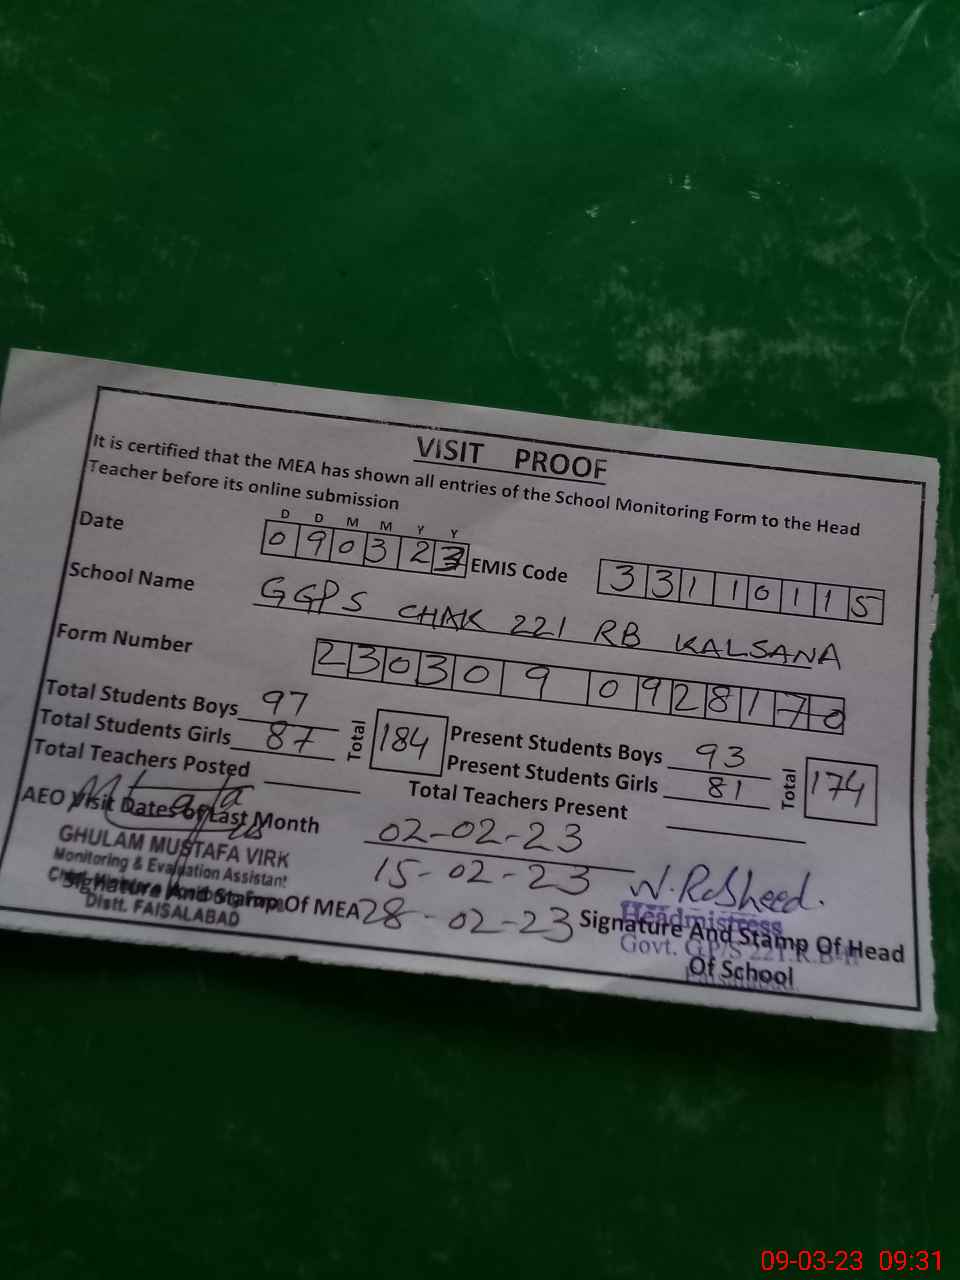 VISIT PROOF
It is certified that the MEA has shown all entries of the School Monitoring Form to the Head
Teacher before its online submission
D D M M Y Y
Date 0 9 0 3 2 3 EMIS Code 3 3 1 1 0 1 1 5
School Name GGPS CHAK 221 RB KALSANA
Form Number 2 3 0 3 0 9 0 9 2 8 1 7 0
Total Students Boys 97 Total 184 Present Students Boys 93 Total 174
Total Students Girls 87 Present Students Girls 81
Total Teachers Posted Total Teachers Present
AEO Visit Dates of Last Month 02-02-23
15-02-23
28-02-23
GHULAM MUSTAFA VIRK
Monitoring & Evaluation Assistant
Distt. FAISALABAD
Signature And Stamp Of MEA
W. Rasheed.
Headmistress
Govt. G.P/S 221.R.B
Signature And Stamp Of Head
Of School
09-03-23 09:31